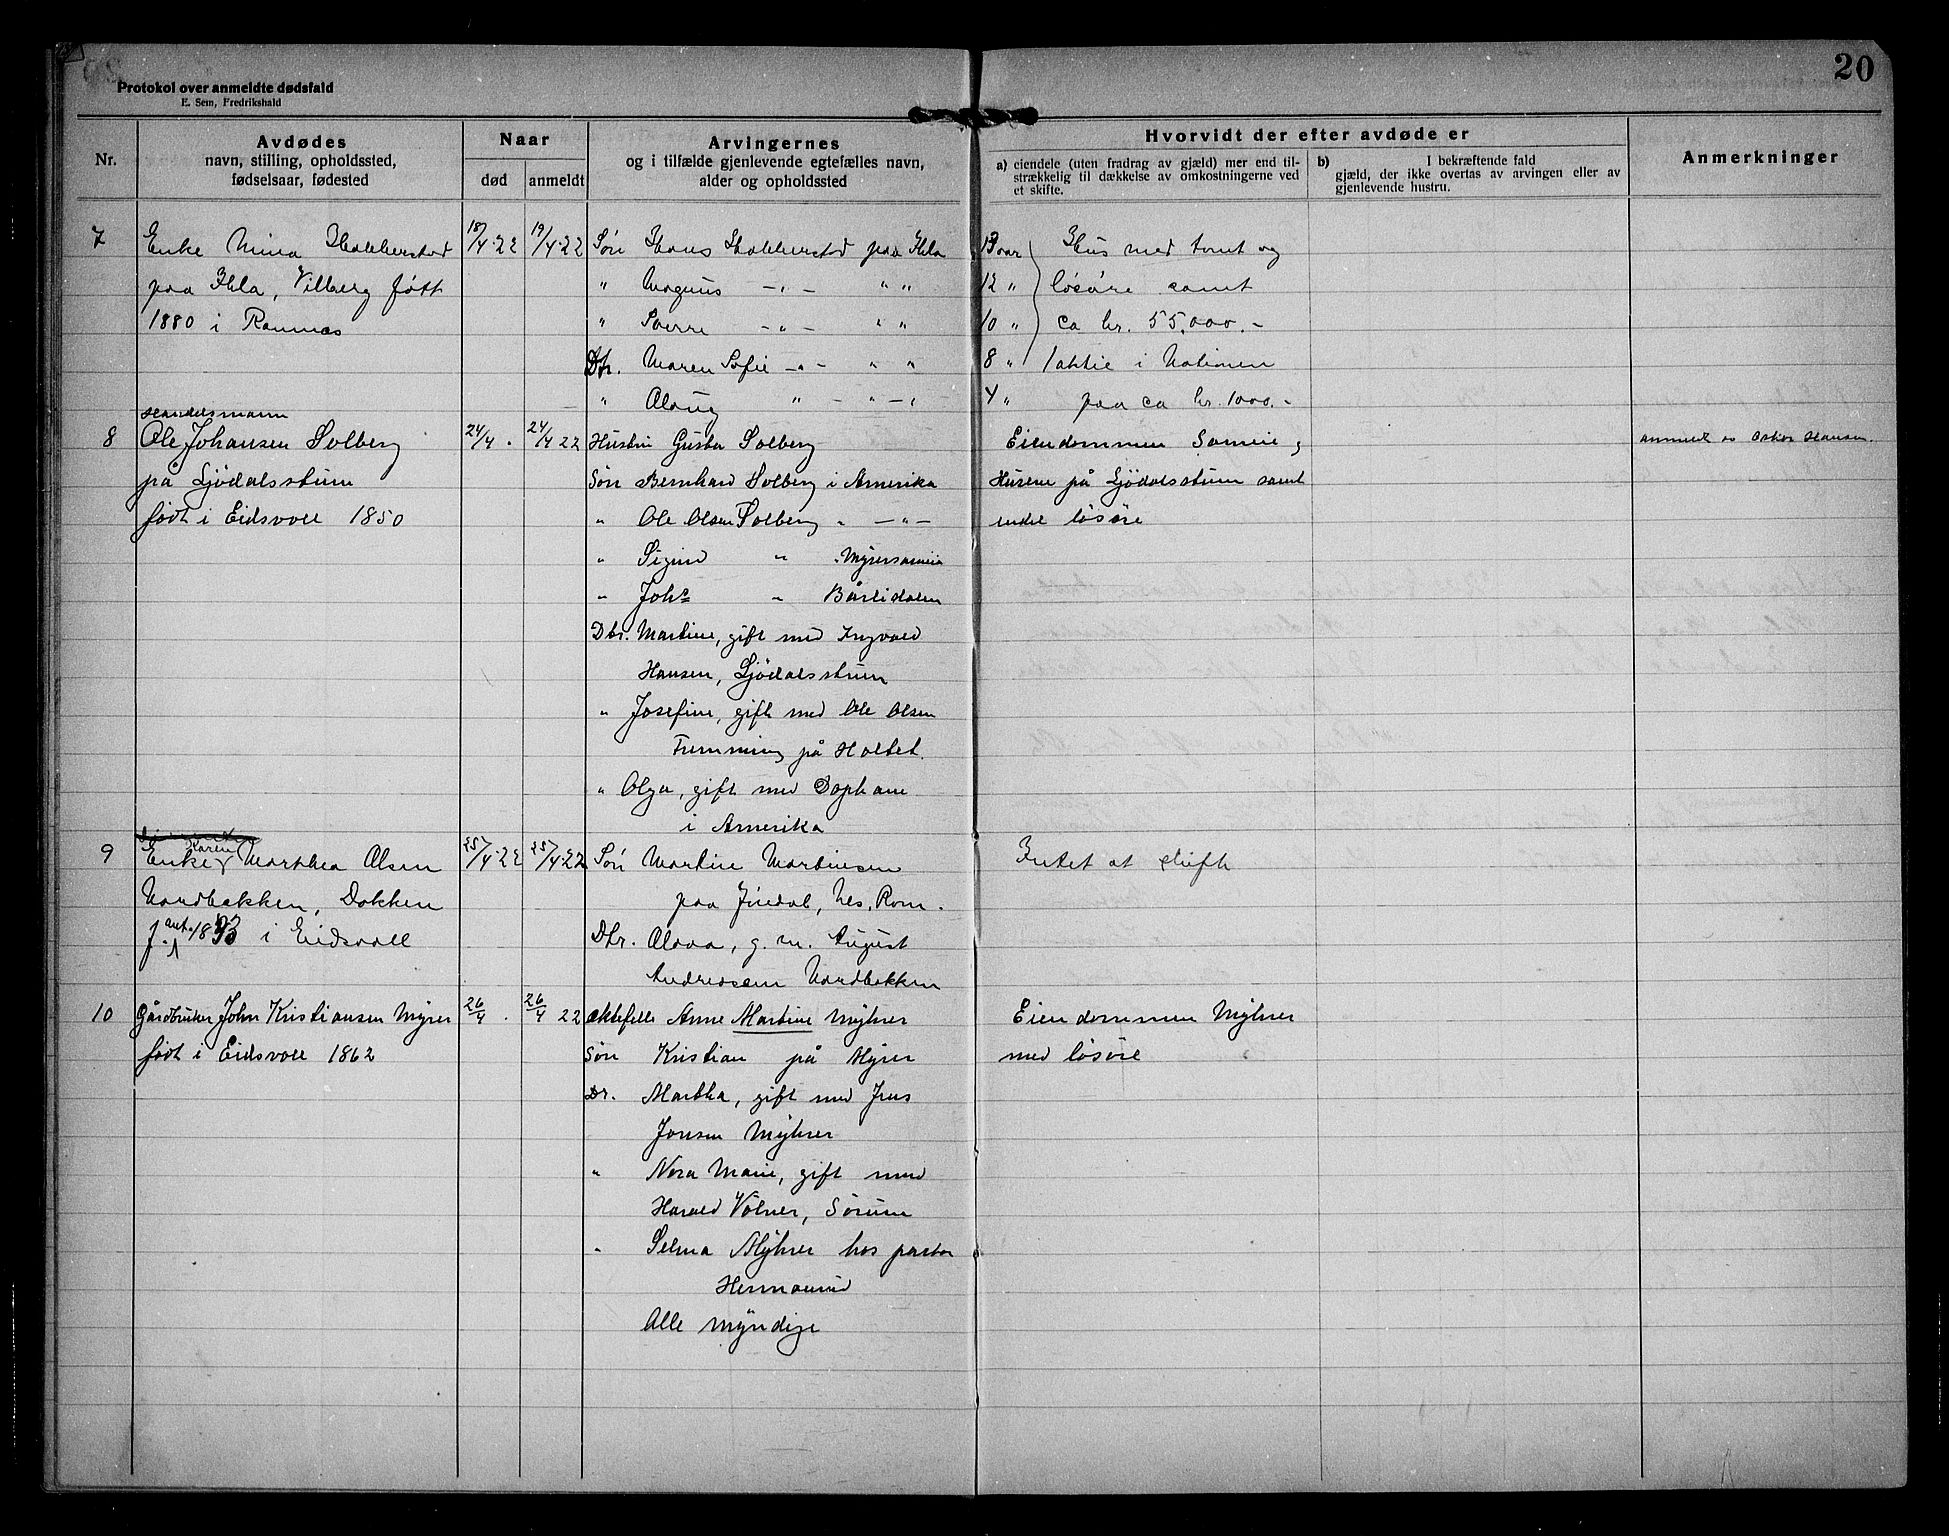 20
Protokol over anmeldte dødsfald
E. Sem, Fredrikshald
Nr.
Avdødes
navn, stilling, opholdssted,
fødselsaar, fødested
Naar
død
anmeldt
Arvingernes
og i tilfælde gjenlevende egtefælles navn,
alder og opholdssted
Hvorvidt der efter avdøde er
a) eiendele (uten fradrag av gjæld) mer end til-
strækkelig til dækkelse av omkostningerne ved
et skifte.
b) I bekræftende fald
gjæld, der ikke overtas av arvingen eller av
gjenlevende hustru.
Anmerkninger
7
Enke Mina Habberstad
paa Ihla, Vilberg født
1880 i Rannæs
18/4-22
19/4-22
Søn Hans Habberstad paa Ihla
" Magnus -"- " "
" Sverre -"- " "
Dtr. Maren Sofie -"- " "
" Aslaug " - " - " -
13 aar
12 "
10 "
8 "
4 "
Hus med tomt og
løsøre samt
ca kr. 55,000.-
1 aktie i Nationen
paa ca kr. 1000.-
8
Handelsmann
Ole Johansen Solberg
på Ljödalsstum
født i Eidsvoll 1850
24/4 .
24/4 22
Hustru Gusta Solberg
Søn Bernhard Solberg i Amerika
" Ole Olsen Solberg " -"-
" Sigurd " "
" Johs " Bårlidalen
Dtr. Martine, gift med Ingvald
Hansen, Ljödalsstum
" Josefine, gift med Ole Olsen
Fremming på Holtet.
" Olga, gift med
i Amerika
Eiendommen
Husene på Ljödalsstum samt
endel løsøre
anmeldt av Oskar Hansen.
9
Enke Karen Marthea Olsen
Nordbakken, Dokken
f. ant. 1833 i Eidsvoll
25/4-22
25/4-22
Søn Martin Martinsen
paa Jindal, Nes, Rom.
Dtr. Olava, g. m. August
Andreassen Nordbakken
Intet at skifte
10
Gårdbruker John Kristiansen Myrer
født i Eidsvoll 1862
26/4 .
26/4 22
Ektefelle Anne Martine Myhrer
Søn Kristian på Myrer
Dr. Martha, gift med Jens
Jonsen Myhrer
" Nora Marie, gift med
Harald Völner, Sørum
" Selma Myhrer hos pastor
Hermanrud
Alle myndige
Eiendommen Myhrer
med løsøre